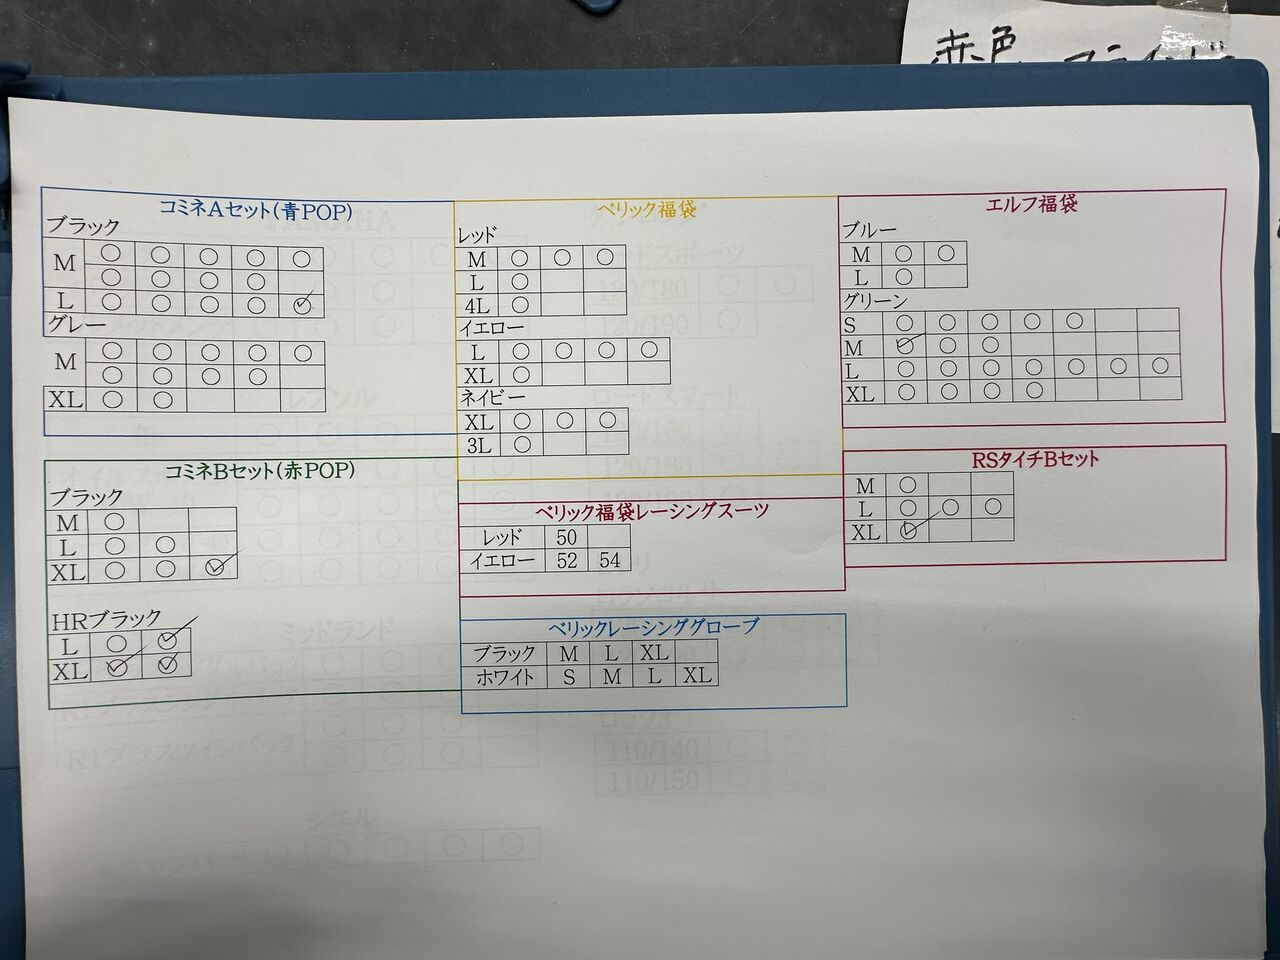 赤色
コミネAセット(青POP)
ブラック
M ○ ○ ○ ○ ○
○ ○ ○ ○
L ○ ○ ○ ○ ○
グレー
M ○ ○ ○ ○ ○
○ ○ ○ ○
XL ○ ○
コミネBセット(赤POP)
ブラック
M ○
L ○ ○
XL ○ ○ ○
HRブラック
L ○ ○
XL ○ ○
ベリック福袋
レッド
M ○ ○ ○
L ○
4L ○
イエロー
L ○ ○ ○ ○
XL ○
ネイビー
XL ○ ○ ○
3L ○
ベリック福袋レーシングスーツ
レッド 50
イエロー 52 54
ベリックレーシンググローブ
ブラック M L XL
ホワイト S M L XL
エルフ福袋
ブルー
M ○ ○
L ○
グリーン
S ○ ○ ○ ○ ○
M ○ ○ ○
L ○ ○ ○ ○ ○ ○ ○
XL ○ ○ ○ ○
RSタイチBセット
M ○
L ○ ○ ○
XL ○